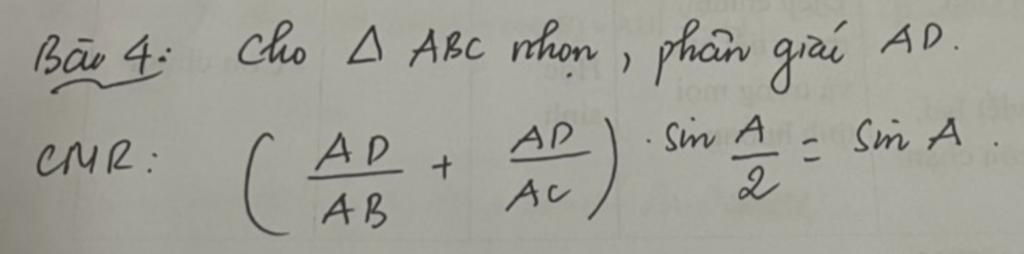 Bài 4: Cho Δ ABC nhọn, phân giác AD.
CMR: (AD/AB + AD/AC) . sin A/2 = sin A.